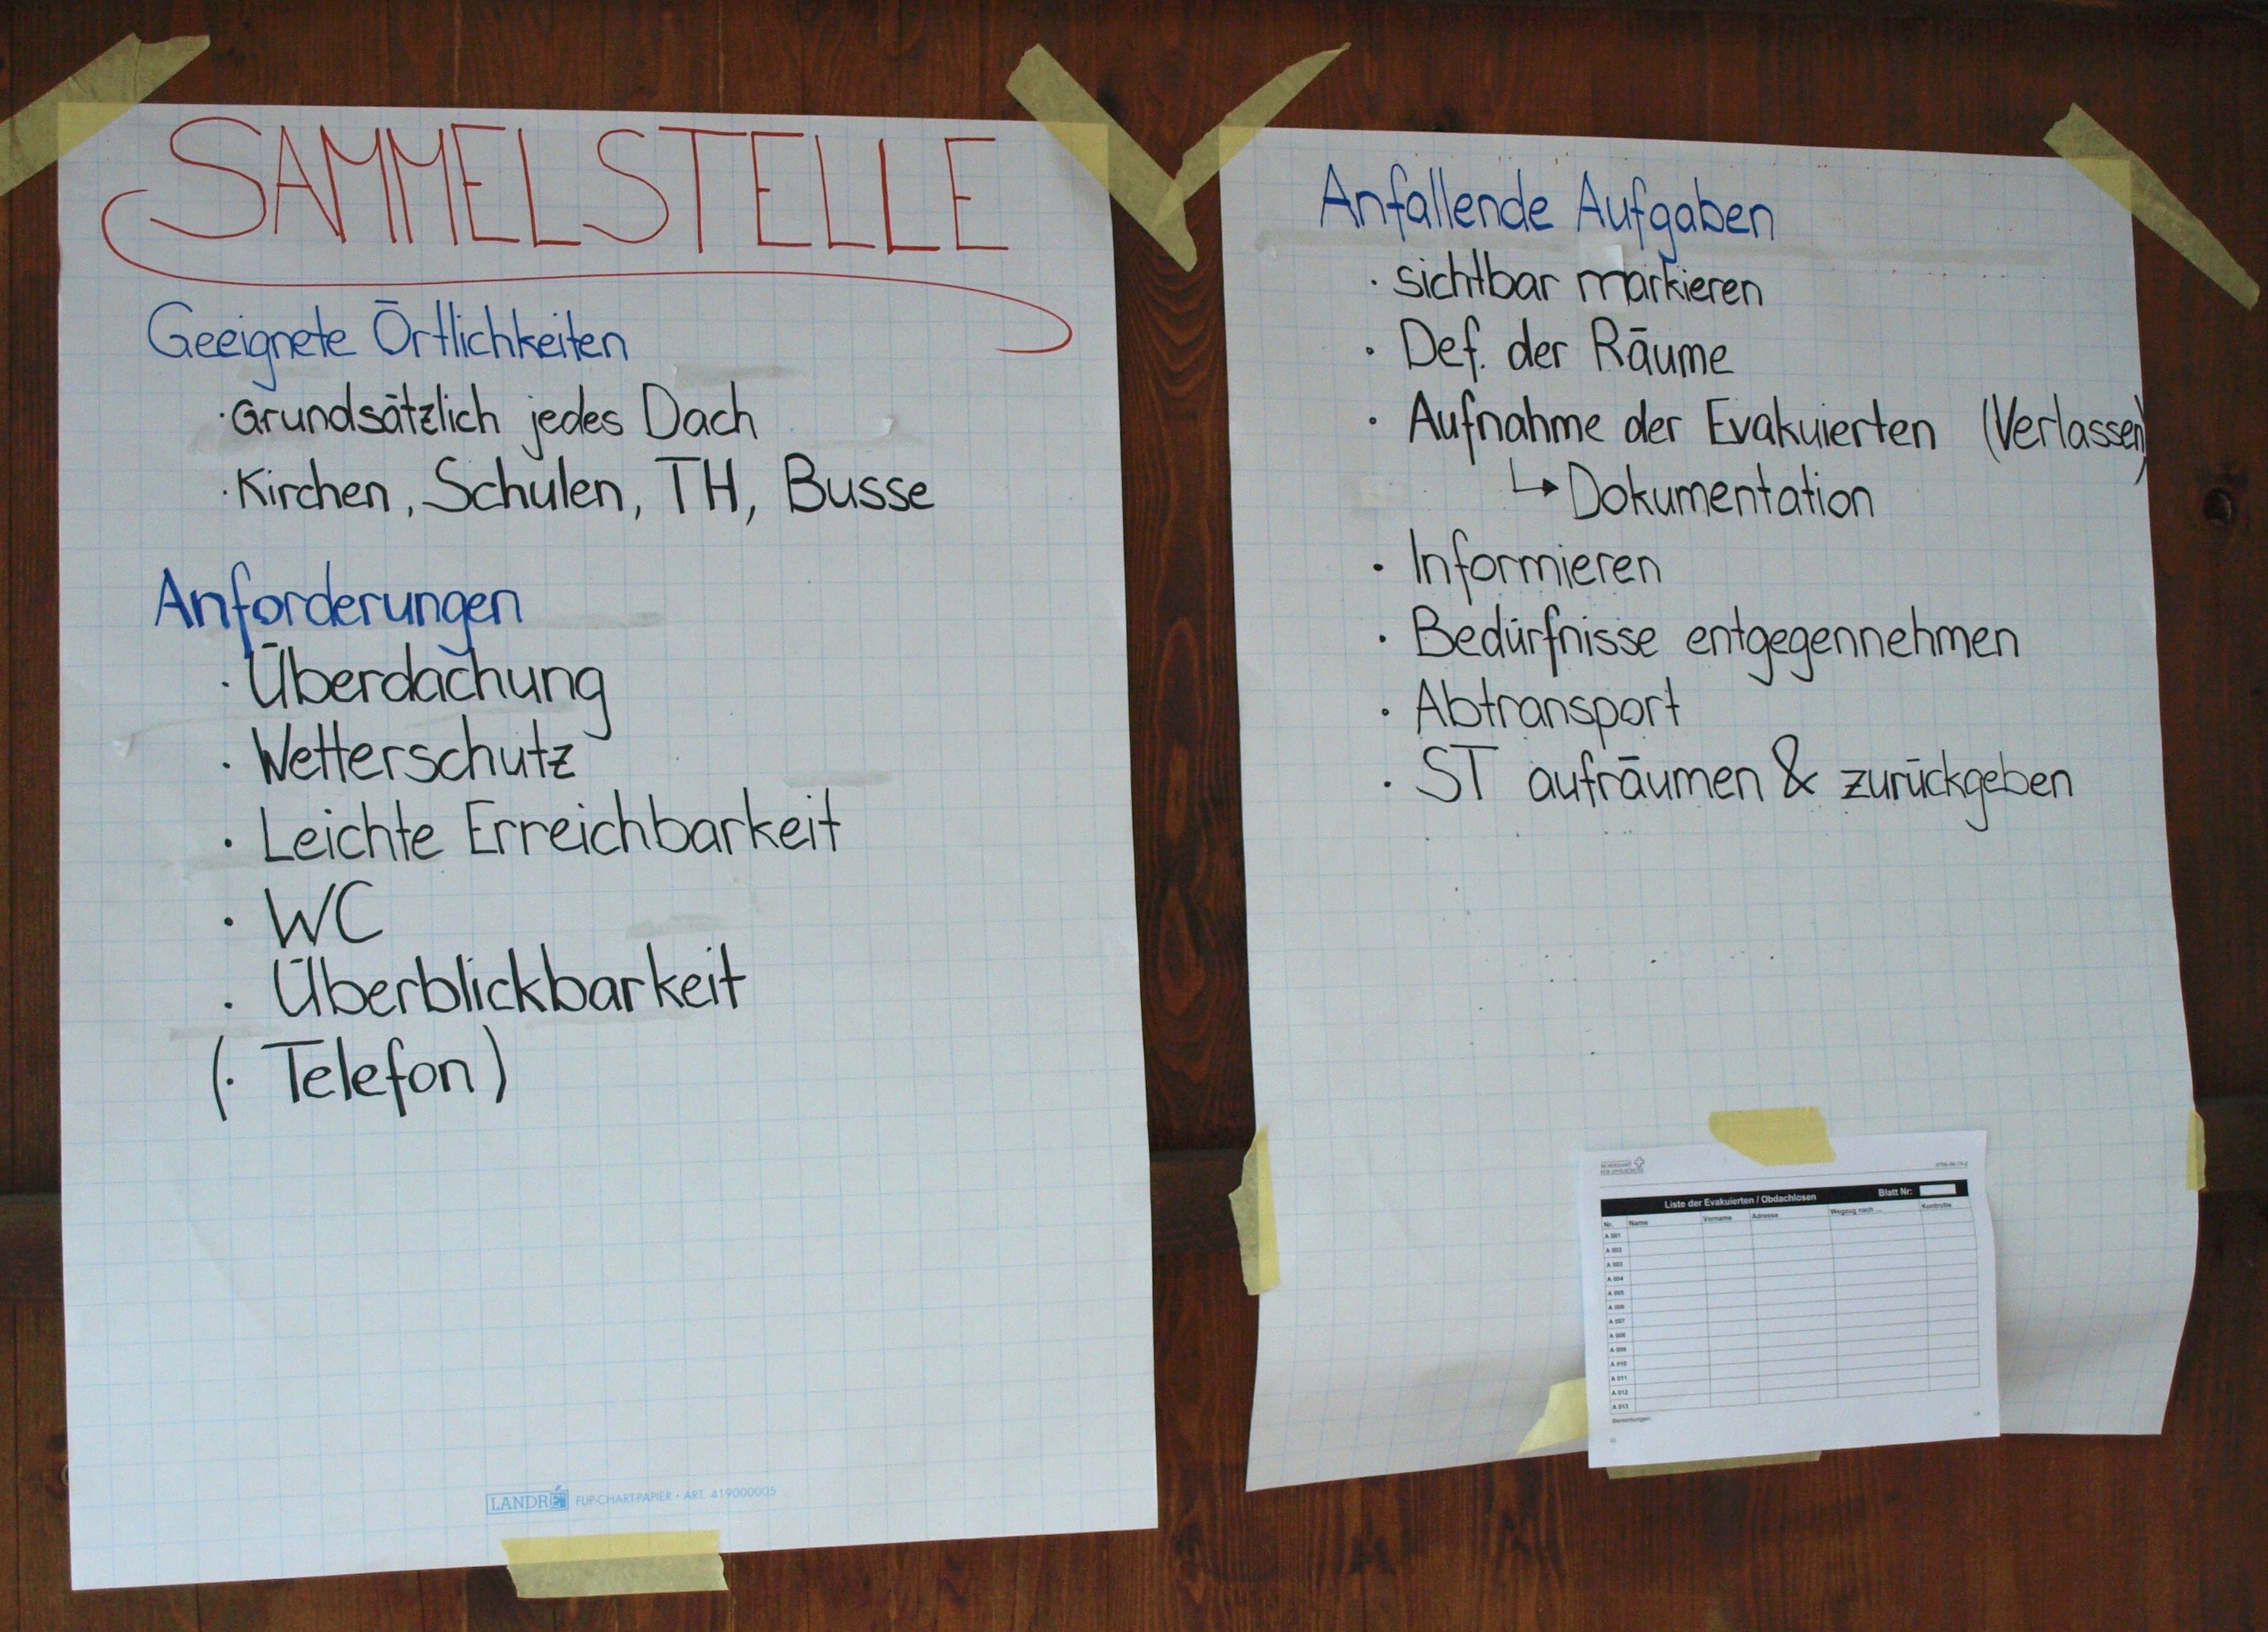 SAMMELSTELLE
Geeignete Örtlichkeiten
· Grundsätzlich jedes Dach
· Kirchen, Schulen, TH, Busse
Anforderungen
· Überdachung
· Wetterschutz
· Leichte Erreichbarkeit
· WC
· Überblickbarkeit
(· Telefon)
LANDRÉ FLIP-CHART-PAPIER · ART. 419000005
Anfallende Aufgaben
· sichtbar markieren
· Def. der Räume
· Aufnahme der Evakuierten (Verlassen)
↳ Dokumentation
· Informieren
· Bedürfnisse entgegennehmen
· Abtransport
· ST aufräumen & zurückgeben
BUNDESAMT
FÜR ZIVILSCHUTZ
Liste der Evakuierten / Obdachlosen Blatt Nr:
Nr. Name Vorname Adresse Wegzug nach ... Kontrolle
A 001
A 002
A 003
A 004
A 005
A 006
A 007
A 008
A 009
A 010
A 011
A 012
A 013
Bemerkungen: